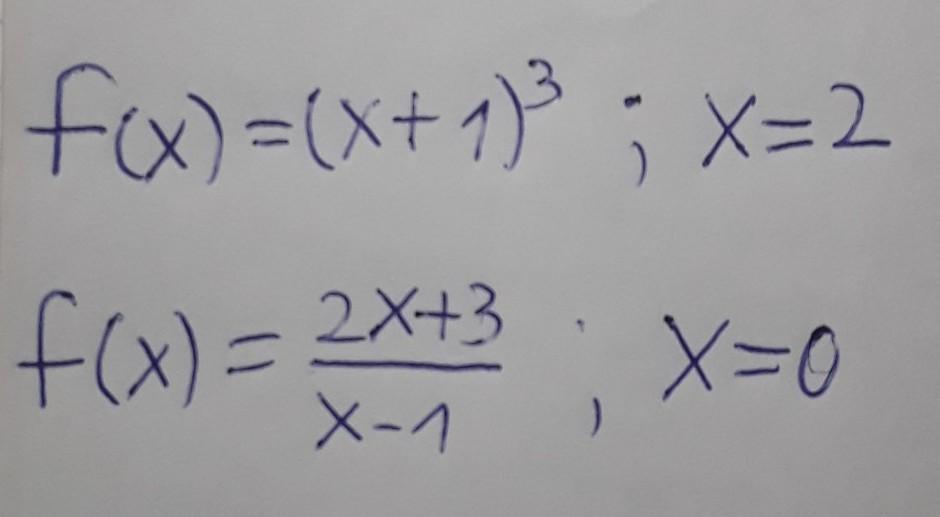 f(x)=(x+1)³ ; x=2
f(x)=\frac{2x+3}{x-1} ; x=0